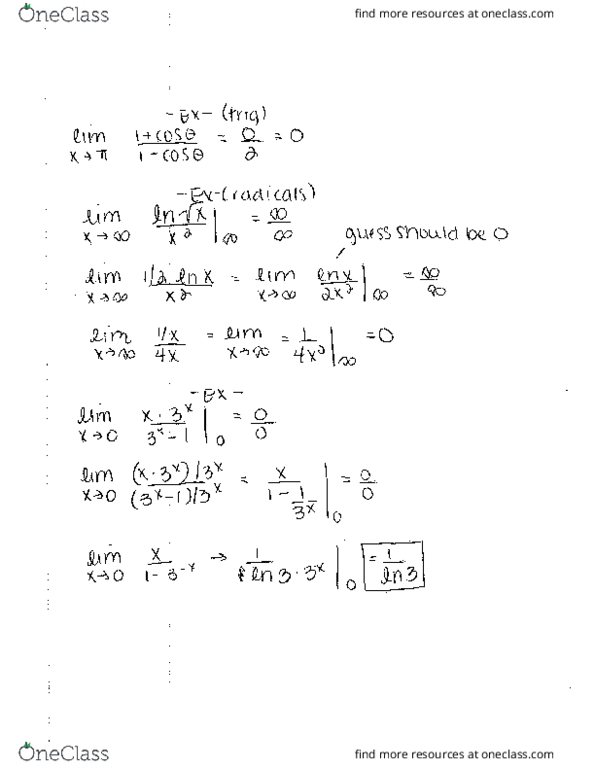 OneClass
find more resources at oneclass.com
-Ex- (trig)
lim x→π (1+cosθ)/(1-cosθ) = 0/2 = 0
-Ex-(radicals)
lim x→∞ (ln√x)/x² |∞ = ∞/∞
guess should be 0
lim x→∞ (1/2 ln x)/x² = lim x→∞ (ln x)/(2x²) |∞ = ∞/∞
lim x→∞ (1/x)/(4x) = lim x→∞ = 1/(4x²) |∞ = 0
-Ex-
lim x→0 (x·3ˣ)/(3ˣ-1) |0 = 0/0
lim x→0 ((x·3ˣ)/3ˣ)/((3ˣ-1)/3ˣ) = x/(1-1/3ˣ) |0 = 0/0
lim x→0 x/(1-3⁻ˣ) → 1/(ln3·3ˣ) |0 = 1/ln3
OneClass
find more resources at oneclass.com